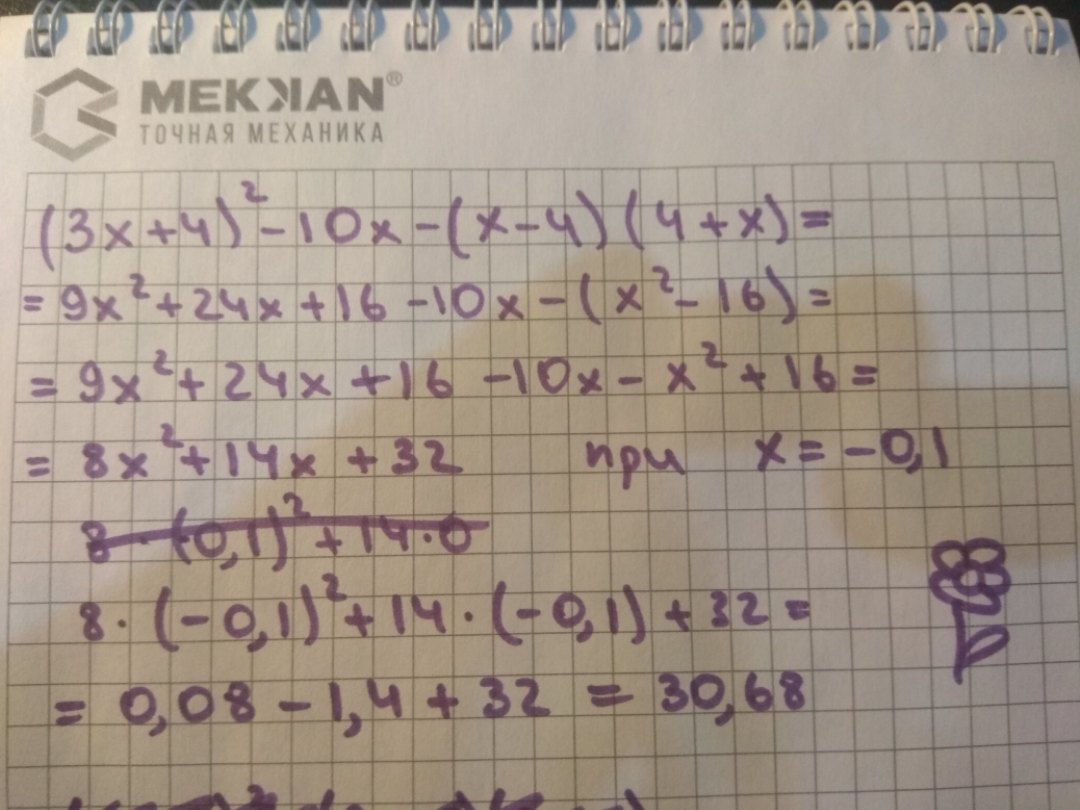 MEKKIAN®
ТОЧНАЯ МЕХАНИКА
(3x+4)²-10x-(x-4)(4+x)=
=9x²+24x+16-10x-(x²-16)=
=9x²+24x+16-10x-x²+16=
=8x²+14x+32 при x=-0,1
8·(0,1)²+14·0
8·(-0,1)²+14·(-0,1)+32=
=0,08-1,4+32=30,68